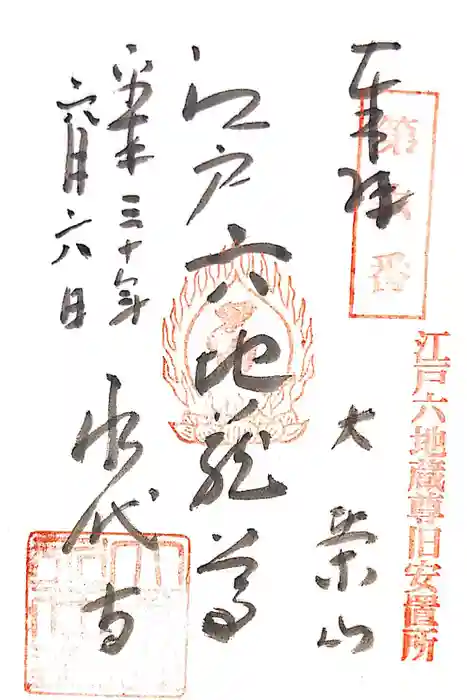 奉拝
第六番
江戸六地蔵尊旧安置所
大栄山
江戸六地蔵尊
永代寺
平成三十年
六月六日